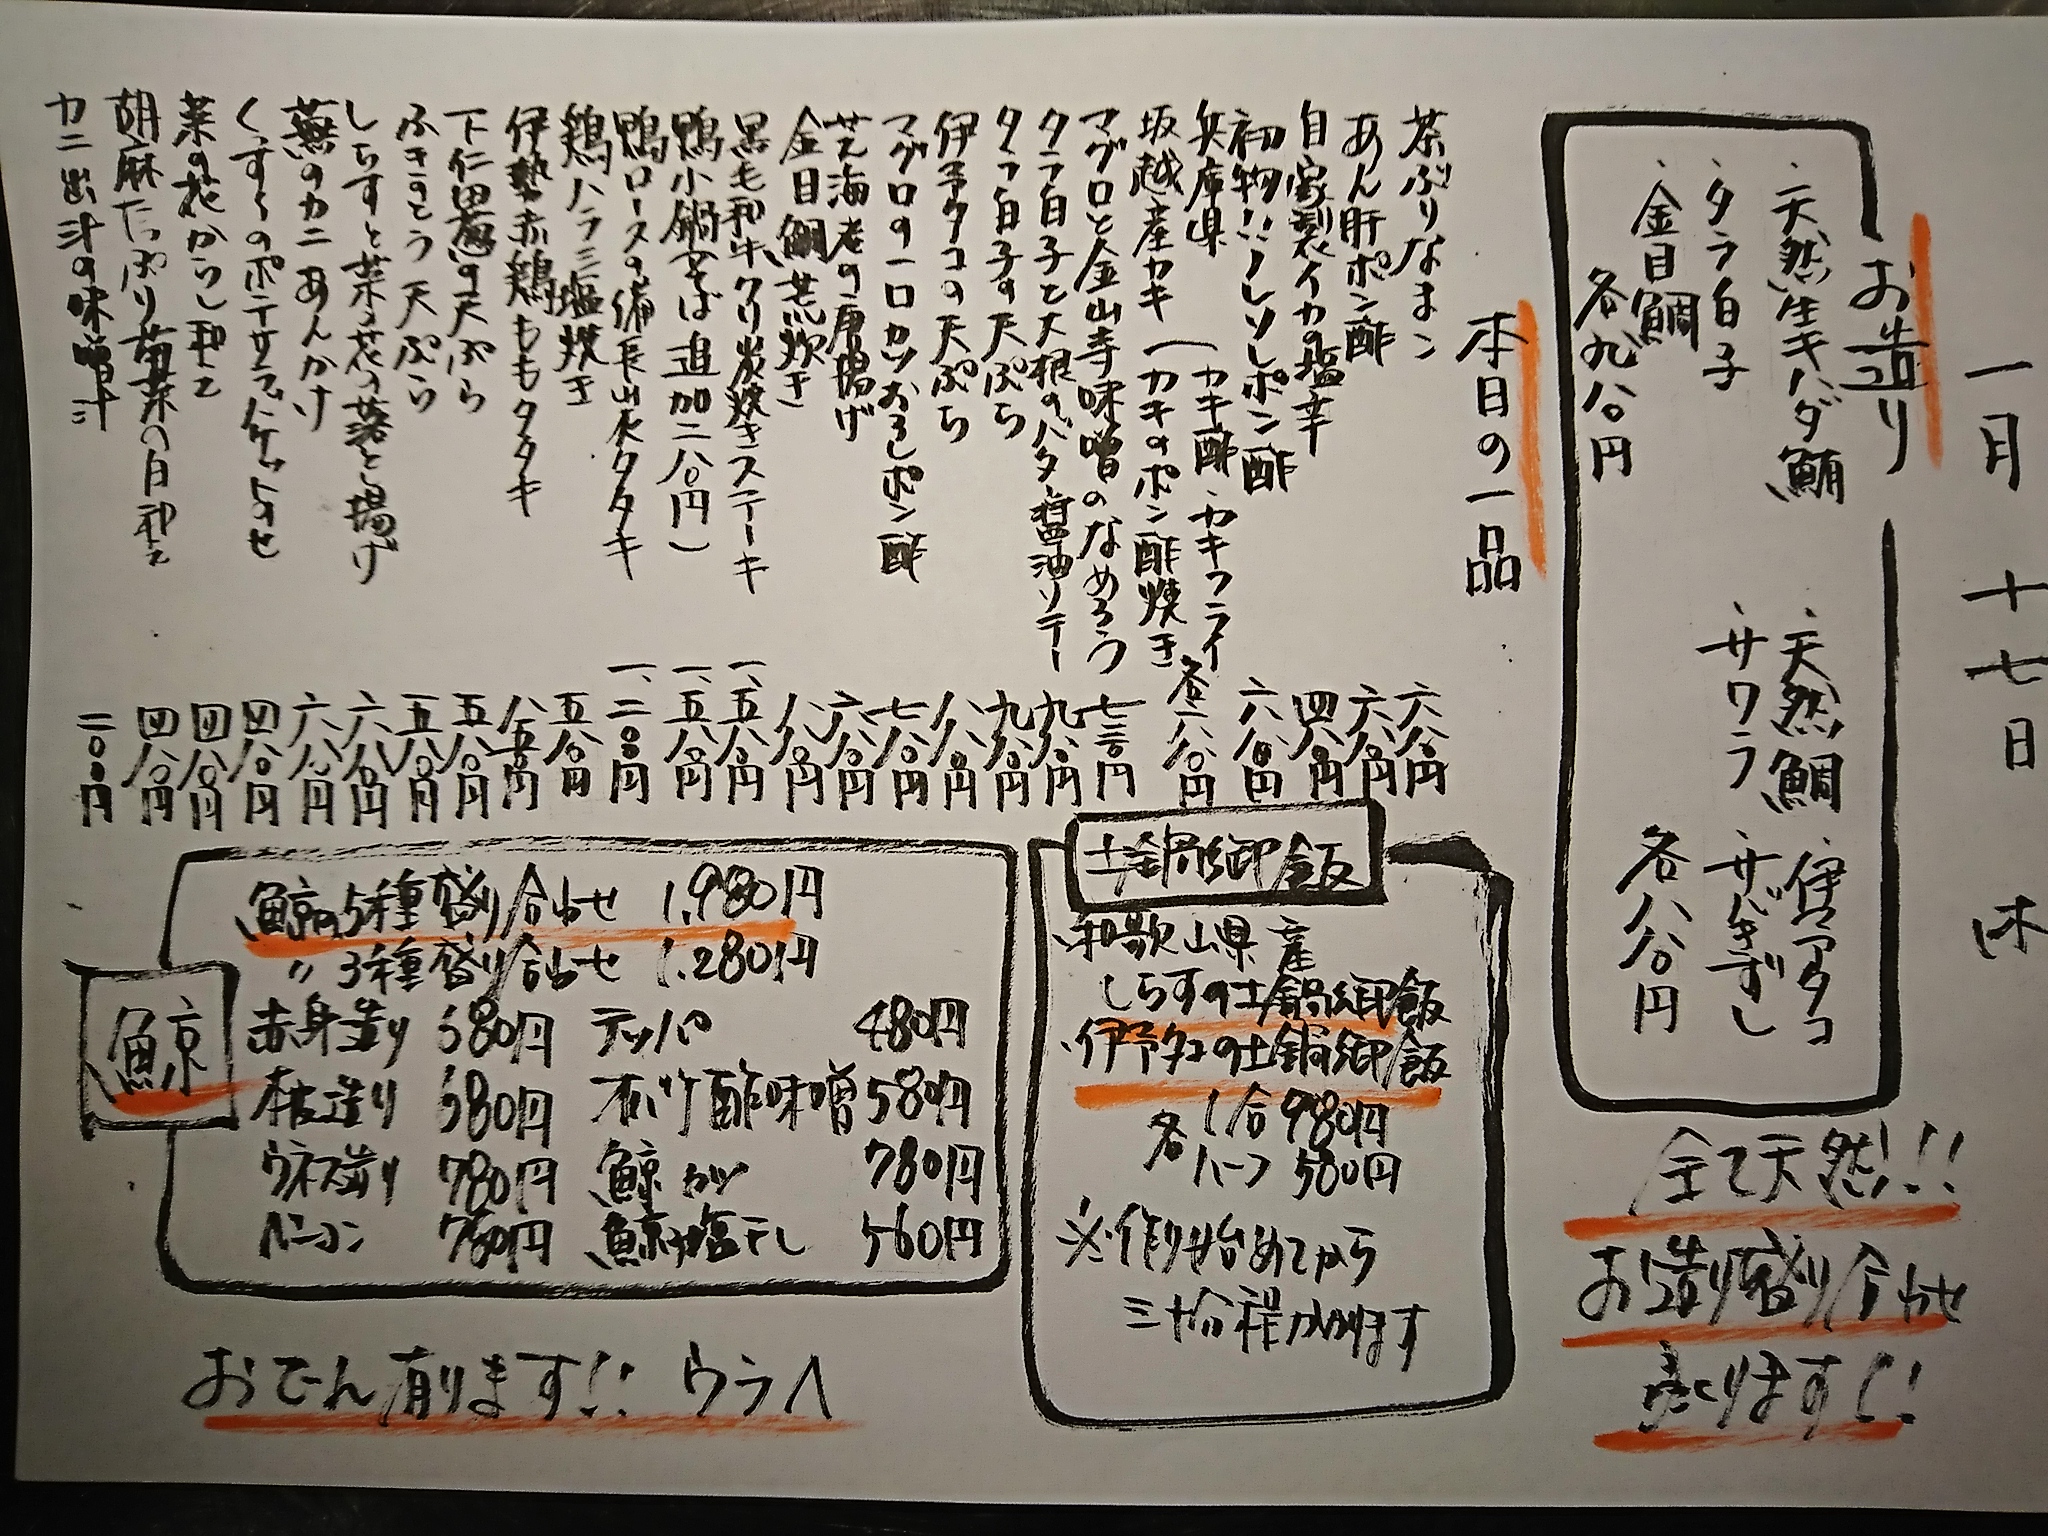 一月十七日 木
お造り
・天然生キハダ鮪
・天然鯛
・伊予タコ
・タラ白子
・サワラ
・サバきずし
・金目鯛
各九八〇円
各八八〇円
全て天然!!
お造り盛り合わせ
有ります!!
本日の一品
茶ぶりなまこ 六八〇円
あん肝ポン酢 六八〇円
自家製イカの塩辛 四八〇円
初物!!ノレソレポン酢 六八〇円
兵庫県
坂越産カキ
(カキ酢・カキフライ
(カキのポン酢焼き
各六八〇円
マグロと金山寺味噌のなめろう 七三〇円
タラ白子と大根のバター醤油ソテー 九八〇円
タラ白子の天ぷら 九八〇円
伊予タコの天ぷら 八八〇円
マグロの一口カツおろしポン酢 七八〇円
芝海老の唐揚げ 六八〇円
金目鯛荒炊き 八八〇円
黒毛和牛クリ炭焼きステーキ 一、五八〇円
鴨小鍋(そば追加二八〇円) 一、五八〇円
鴨ロースの備長山椒タタキ 一、二〇〇円
鶏ハラミ塩焼き 五八〇円
伊勢赤鶏ももタタキ 八五〇円
下仁田葱の天ぷら 五八〇円
ふきのとう天ぷら 五八〇円
しらすと菜の花の落とし揚げ 六八〇円
蕪のカニあんかけ 六八〇円
くずしのポテサラバケットのせ 四八〇円
菜の花からし和え 四八〇円
胡麻たっぷり菊菜の白和え 四八〇円
カニ出汁の味噌汁 二〇〇円
土鍋御飯
・和歌山県産
しらすの土鍋御飯
・伊予タコの土鍋御飯
各 1合 980円
ハーフ 500円
※作り始めてから
三十分程かかります
鯨
鯨の5種盛り合わせ 1,980円
〃 3種盛り合わせ 1,280円
赤身造り 580円 テッパ 480円
本皮造り 580円 オバケ酢味噌 580円
ウネス造り 780円 鯨カツ 780円
ベーコン 780円 鯨塩干し 560円
おでん有ります!! ウラへ